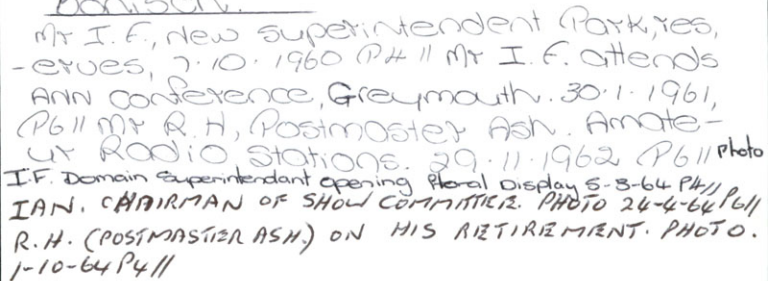 Mr I. F., New Superintendent Park, res,
-erves, 7.10.1960 P4 // Mr I. F. attends
ANN Conference, Greymouth. 30.1.1961,
P6 // Mr R. H, Postmaster Ash. Amate-
ur Radio Stations. 29.11.1962 P6 // Photo
I.F. Domain Superintendant opening Floral Display 5-3-64 P4 //
IAN. CHAIRMAN OF SHOW COMMITTEE. PHOTO 24-4-64 P6 //
R.H. (POSTMASTER ASH.) ON HIS RETIREMENT. PHOTO.
1-10-64 P4 //